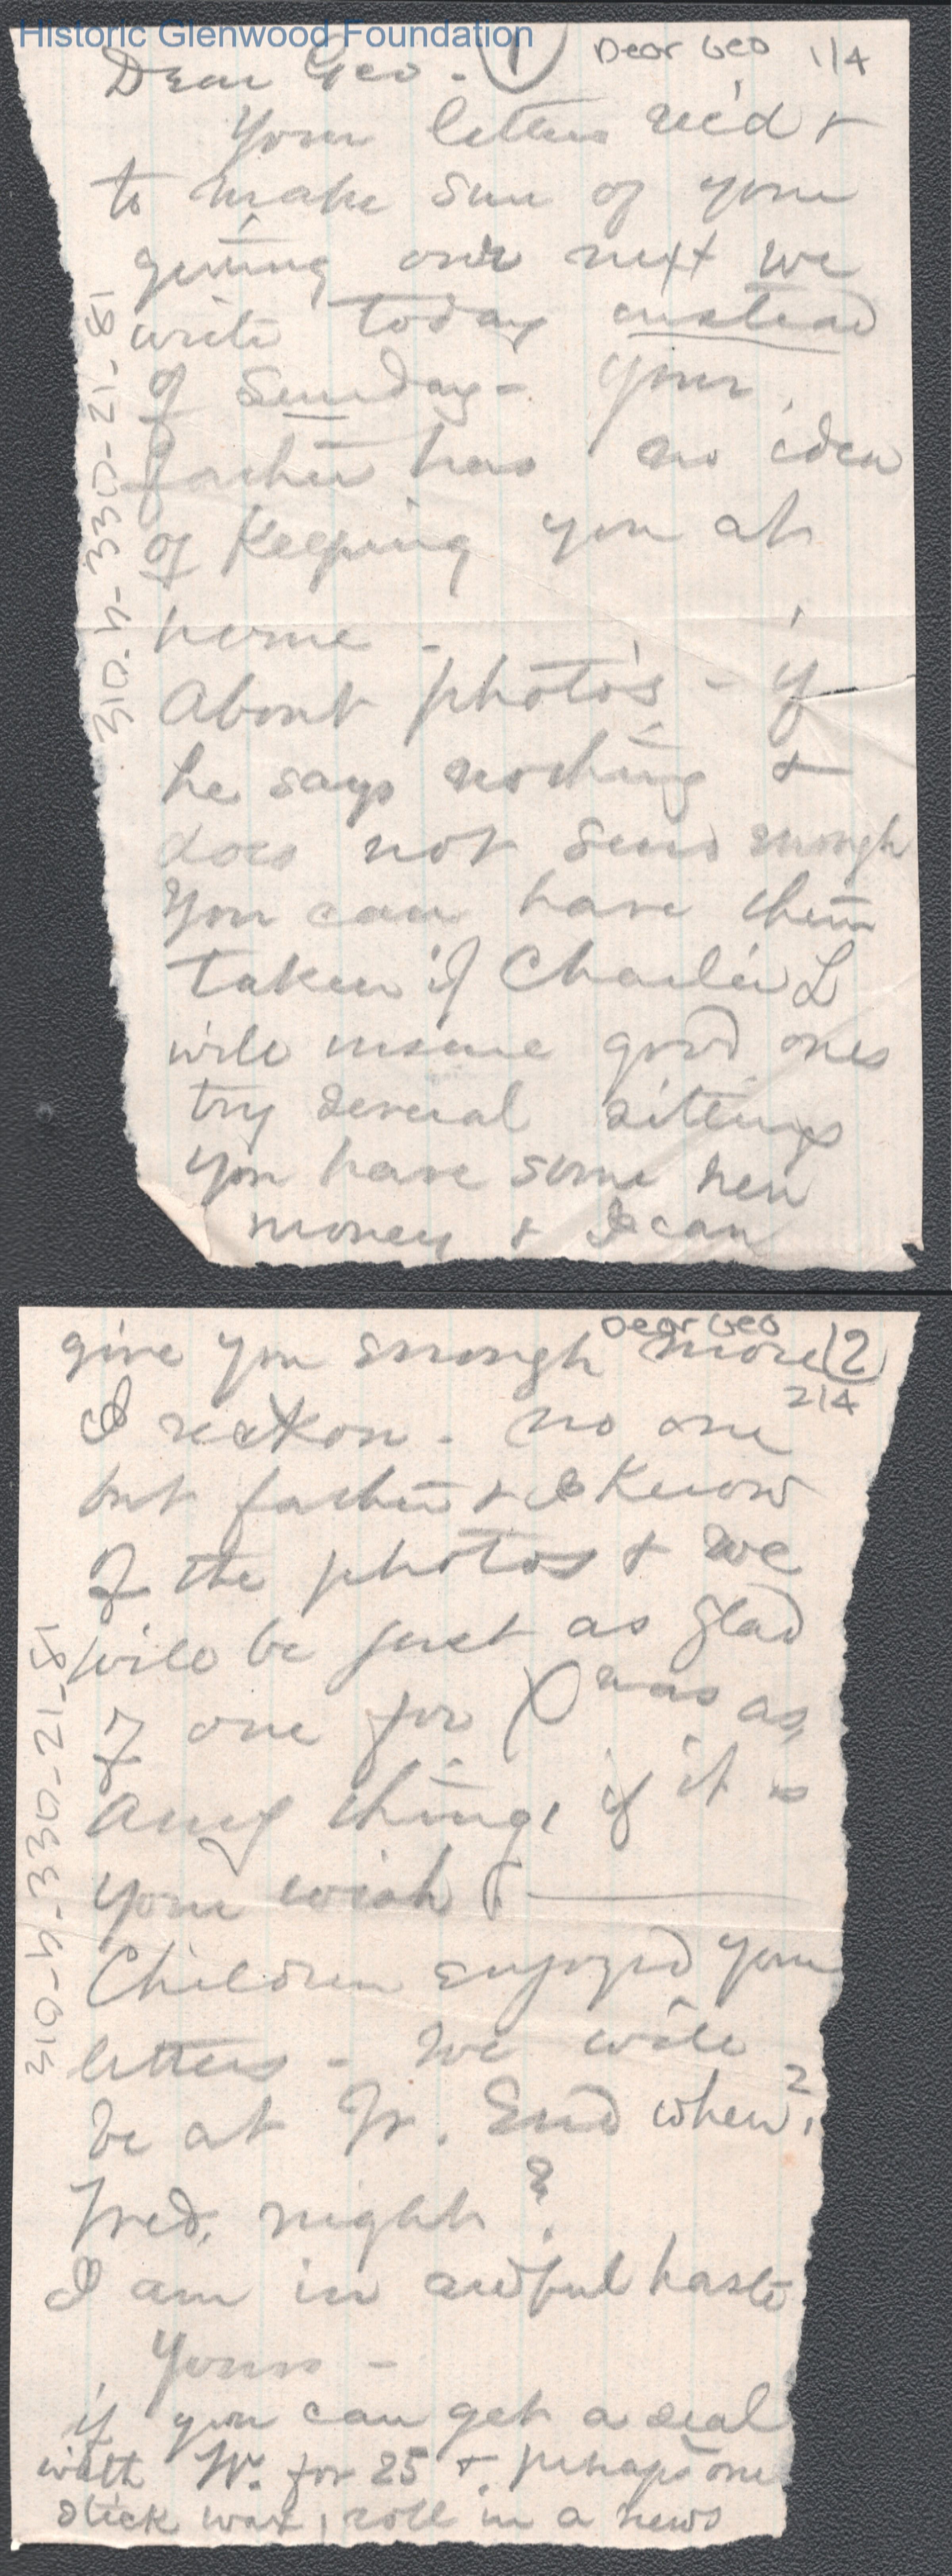 Historic Glenwood Foundation
Dear Geo. - 1 Dear Geo 1/4
Your letters rec'd &
to make sure of your
getting our next we
write today instead
of Sunday - Your
father has no idea
of Keeping you at
home -
About photo's - if
he says nothing &
does not send enough
You can have them
taken if Charlie L
will insure good ones
try several sittings
You have some new
money & I can
310-4-330-21-81
Dear Geo
give you enough more 2
2/4
I reckon - no one
but father & I Know
of the photos & we
will be just as glad
of one for Xmas as
any thing, if it is
your wish
Children enjoyed your
letters - We will
be at W. End when?
Wed. night?
I am in awful haste
Yours -
if you can get a seal
with W. for 25 & perhaps one
stick wax, roll in a news
310-4-330-21-81